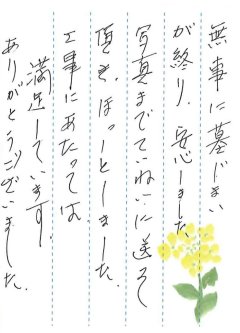 無事に墓じまい
が終り、安心しました。
写真までていねいに送って
頂き、ほっーとしました。
工事にあたっては
満足しています
ありがとうございました。